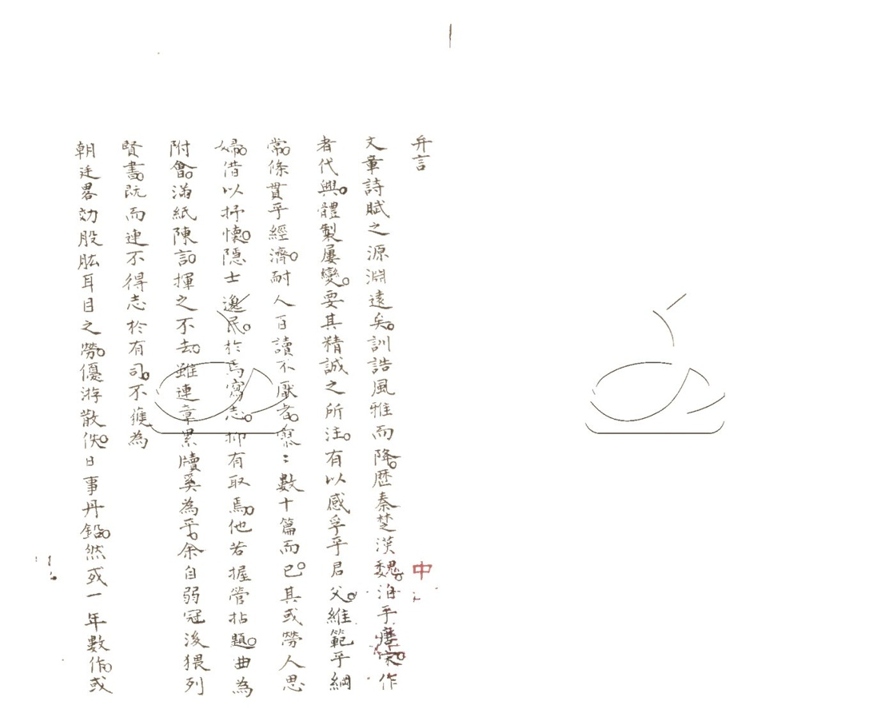 弁言
文章詩賦之源淵遠矣訓誥風雅而降歷秦楚漢魏洎乎唐宋作
者代興體製屢變要其精誠之所注有以感孚乎君父維範乎綱
常條貫乎經濟耐人百讀不厭者寥:數十篇而已其或勞人思
婦借以抒懷隱士逸民於焉寫志抑有取焉他若握管拈題曲為
附會滿紙陳言揮之不去雖連章累牘奚為乎余自弱冠後猥列
賢書既而連不得志於有司不獲為
朝廷畧効股肱耳目之勞優游散佚日事丹鉛然或一年數作或
中